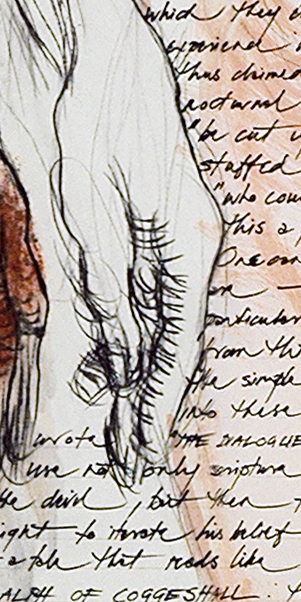 which they
experiencd
thus claimed
nocturnal
"be cut
stuffed
"who
this a
One can
particular
from
the simple
into these
wrote "THE DIALOGUE
use not only scripture
the devil, but then
to iterate his belief
a tale that reads like
ALPH OF COGGESHALL: Y